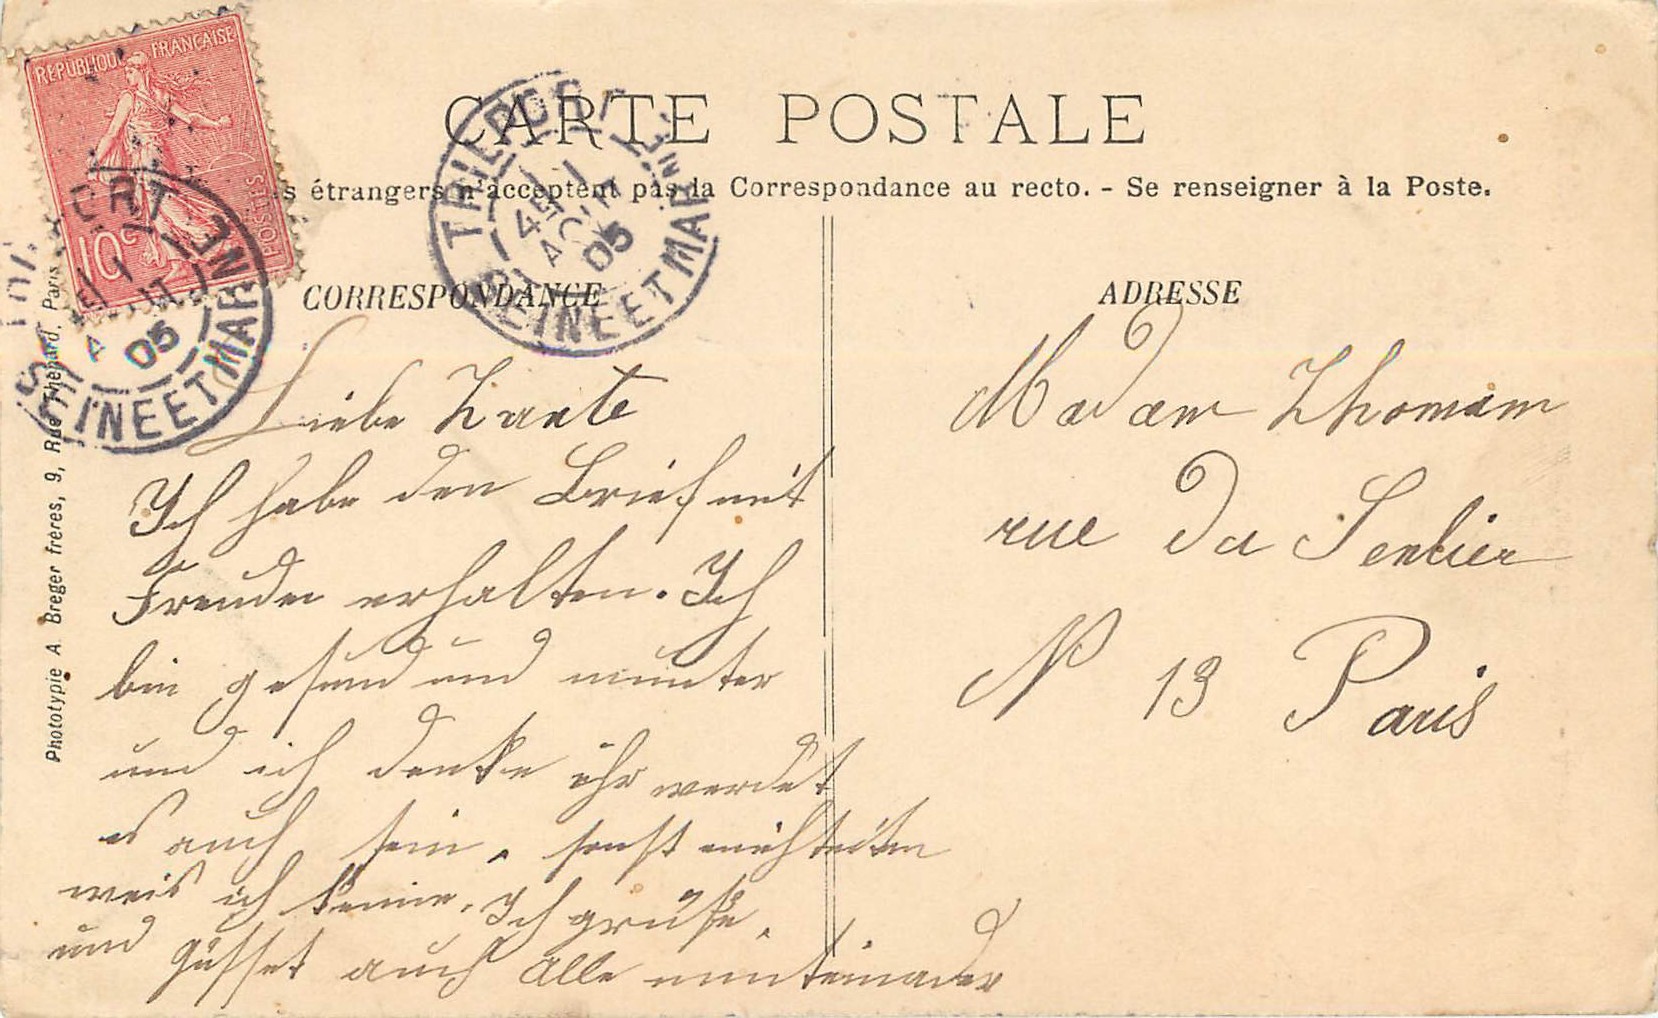 RÉPUBLIQUE FRANÇAISE
POSTES
10c
CARTE POSTALE
étrangers n'acceptent pas la Correspondance au recto. - Se renseigner à la Poste.
SEINE ET MARNE
05
SEINE ET MARNE
05
CORRESPONDANCE
ADRESSE
Phototypie A Breger frères, 9, Rue Thénard, Paris
Liebe Tante
Ich habe den Brief mit
Freuden erhalten. Ich
bin gesund und munter
und ich denke ihr werdet
es auch sein, sonst
weis ich keine. Ich grüße,
und auch Alle
Madam Thomam
rue du Sentier
N 13 Paris